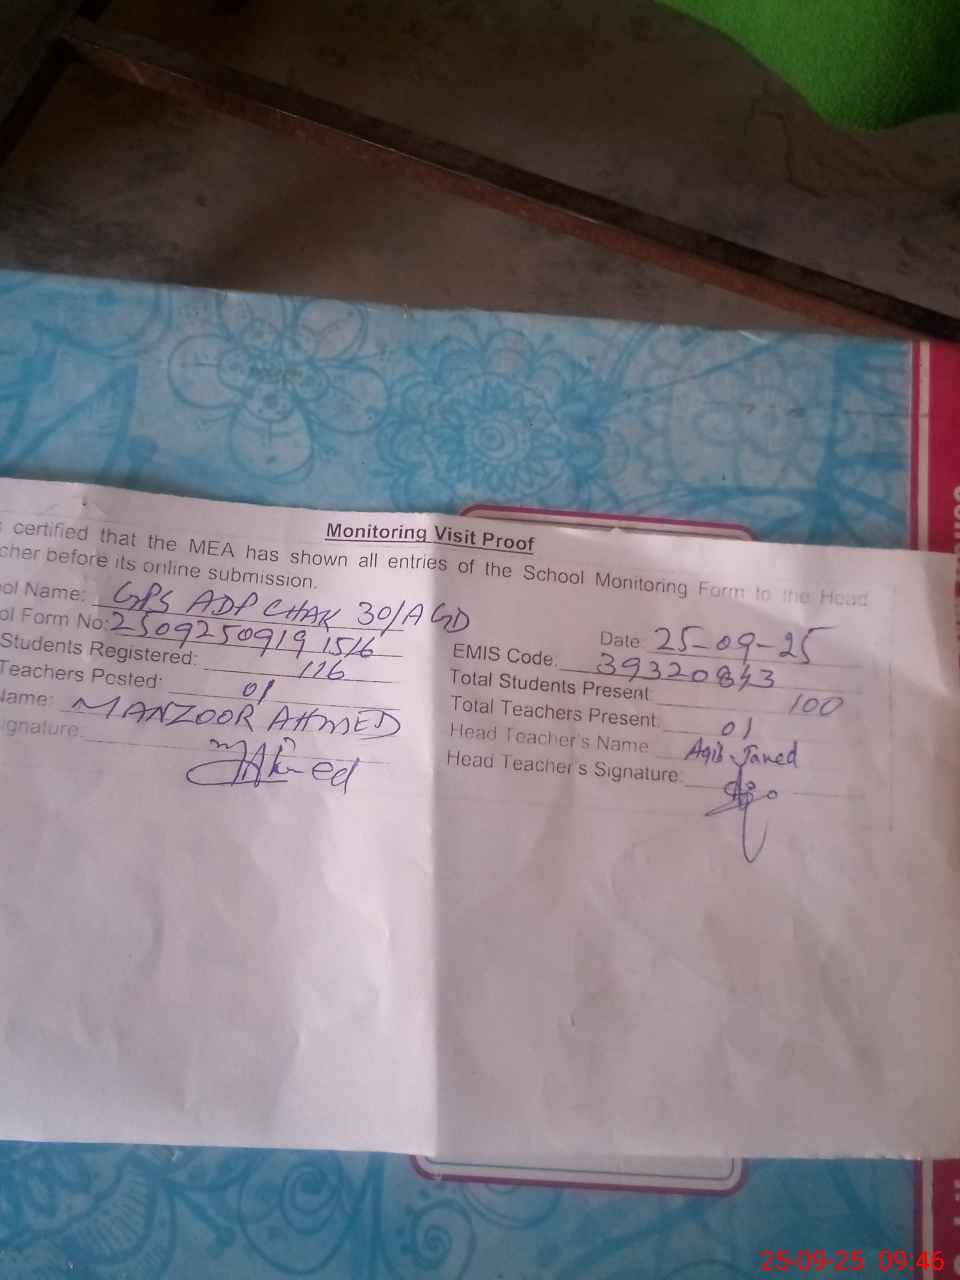 Monitoring Visit Proof
certified that the MEA has shown all entries of the School Monitoring Form to the Head
cher before its online submission.
ol Name: GPS ADP CHAK 30/A GD
Date: 25-09-25
ol Form No: 2509250919 1516
EMIS Code: 39320843
Students Registered: 116
Total Students Present: 100
Teachers Posted: 01
Total Teachers Present: 01
Name: MANZOOR AHMED
Head Teacher's Name Aqib Javed
ignature:
Head Teacher's Signature:
25-09-25 09:46